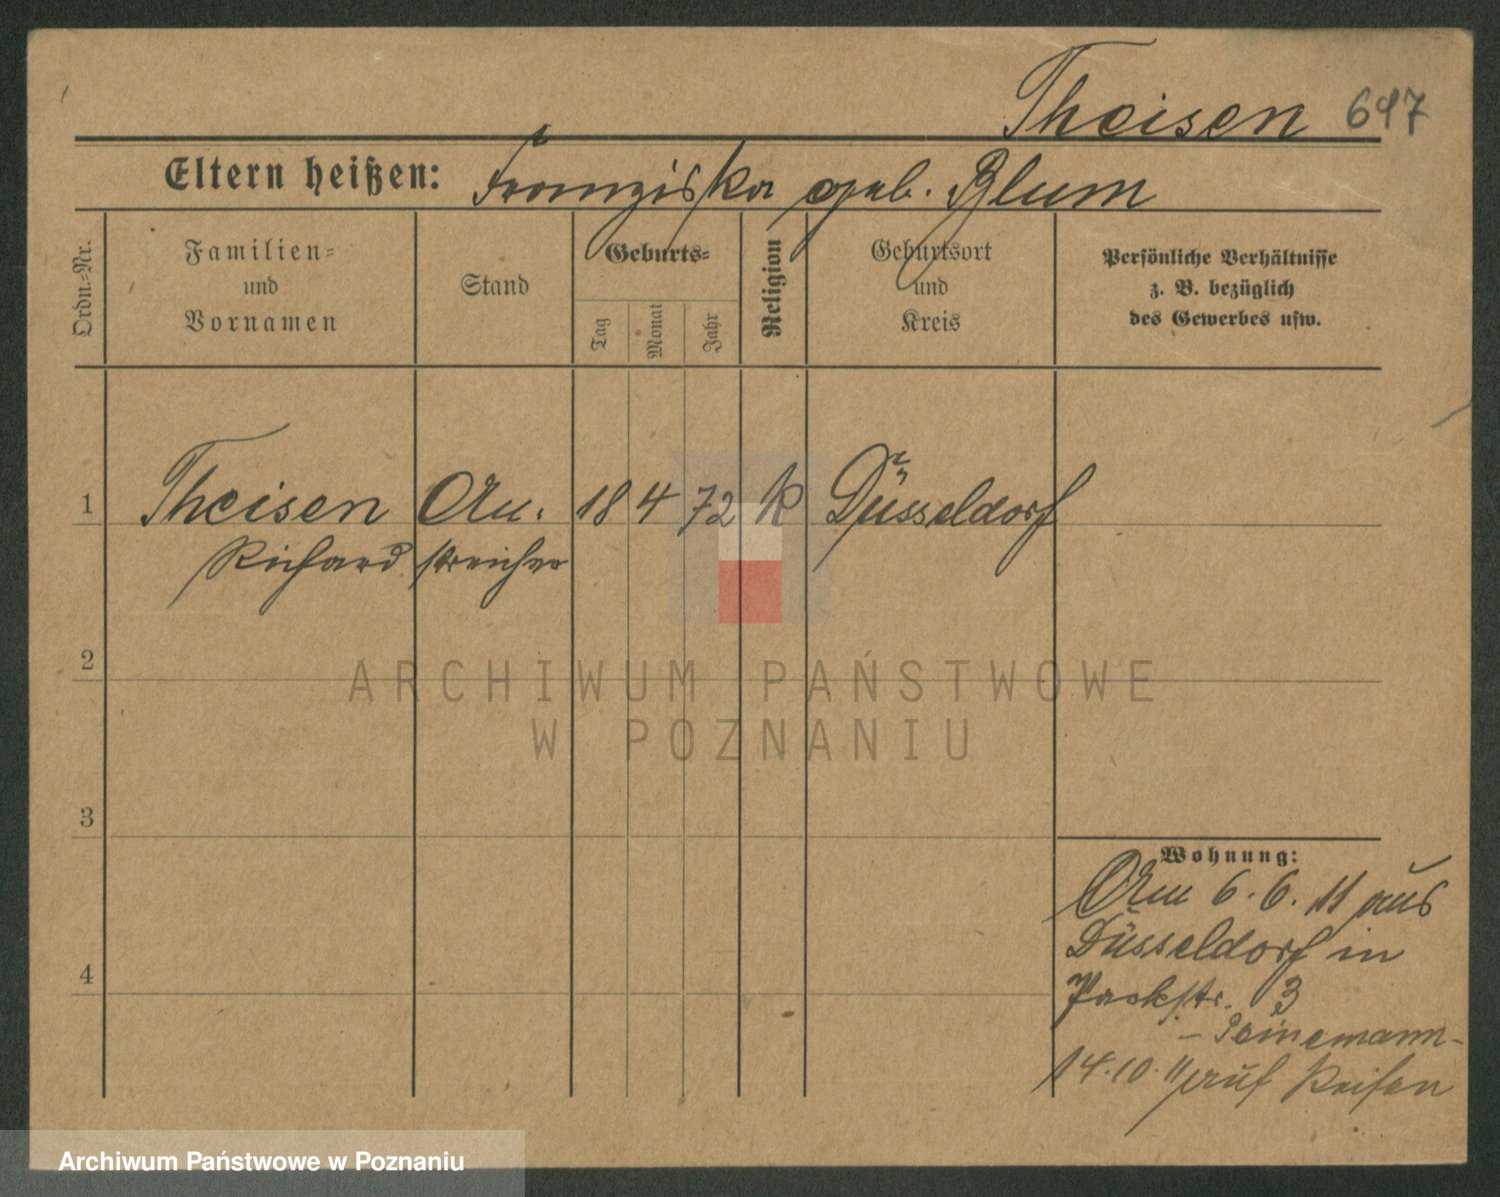 Theisen 697
Eltern heißen: Franziska geb. Blum
Ordn.-Nr.
Familien-
und
Vornamen
Stand
Geburts-
Tag
Monat
Jahr
Religion
Geburtsort
und
Kreis
Persönliche Verhältnisse
z. B. bezüglich
des Gewerbes usw.
1 Theisen An. 18 4 72 k Düsseldorf
Richard streicher
2
3
4
Wohnung:
Am 6.6.11 aus
Düsseldorf in
3
14.10.11 auf Reisen
ARCHIWUM PAŃSTWOWE
W POZNANIU
Archiwum Państwowe w Poznaniu